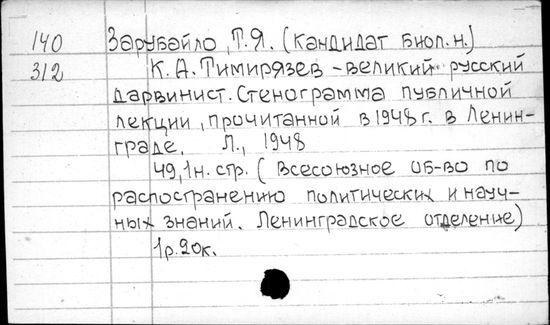 140 Зарубайло, Т.Я. (кандидат биол.н.)
312 К.А.Тимирязев - великий русский
дарвинист. Стенограмма публичной
лекции, прочитанной в 1948 г. в Ленин-
граде. Л., 1948
49,1н. стр. ( Всесоюзное об-во по
распостранению политических и науч-
ных знаний. Ленинградское отделение)
1р.20к.